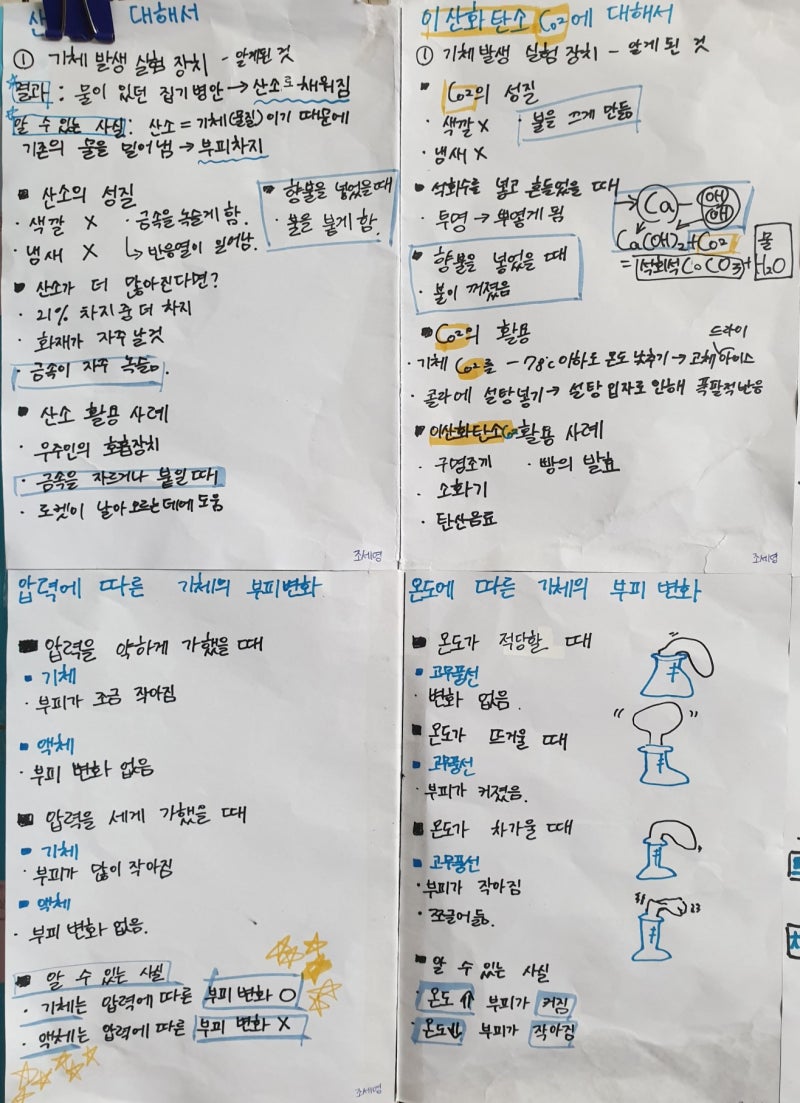 산 대해서
① 기체 발생 실험 장치 - 알게된 것
*결과 : 물이 있던 집기병안 → 산소로 채워짐
*알 수 있는 사실 : 산소 = 기체(물질)이기 때문에
기존의 물을 밀어냄 → 부피차지
■ 산소의 성질
· 색깔 X · 금속을 녹슬게 함.
· 냄새 X ↳ 반응열이 일어남.
· 향불을 넣었을 때
· 불을 붙게 함.
■ 산소가 더 많아진다면?
· 21% 차지 중 더 차지
· 화재가 자주 날것
· 금속이 자주 녹슮.
■ 산소 활용 사례
· 우주인의 호흡장치
· 금속을 자르거나 붙일 때
· 로켓이 날아오르는데에 도움
조세영
이산화탄소 Co²에 대해서
① 기체발생 실험 장치 - 알게 된 것
■ Co²의 성질
· 색깔 X · 불을 끄게 만듦
· 냄새 X
■ 석회수를 넣고 흔들었을 때
· 투명 → 뿌옇게 됨
Ca OH OH
Ca(OH)₂+Co₂
= 석회석 CaCO₃ + 물 H₂O
· 향불을 넣었을 때
· 불이 꺼졌음
■ Co²의 활용
· 기체 Co²를 -78℃ 이하로 온도 낮추기 → 고체 드라이아이스
· 콜라에 설탕넣기 → 설탕 입자로 인해 폭팔적반응
■ 이산화탄소 Co² 활용 사례
· 구명조끼 · 빵의 발효
· 소화기
· 탄산음료
조세영
압력에 따른 기체의 부피변화
■ 압력을 약하게 가했을 때
■ 기체
· 부피가 조금 작아짐
■ 액체
· 부피 변화 없음
■ 압력을 세게 가했을 때
■ 기체
· 부피가 많이 작아짐
■ 액체
· 부피 변화 없음.
■ 알 수 있는 사실
· 기체는 압력에 따른 부피 변화 O
· 액체는 압력에 따른 부피 변화 X
조세영
온도에 따른 기체의 부피 변화
■ 온도가 적당할 때
■ 고무풍선
· 변화 없음.
■ 온도가 뜨거울 때
■ 고무풍선
· 부피가 커졌음.
■ 온도가 차가울 때
■ 고무풍선
· 부피가 작아짐
· 쪼글어듦.
■ 알 수 있는 사실
· 온도⇑ 부피가 커짐
· 온도⇓ 부피가 작아짐